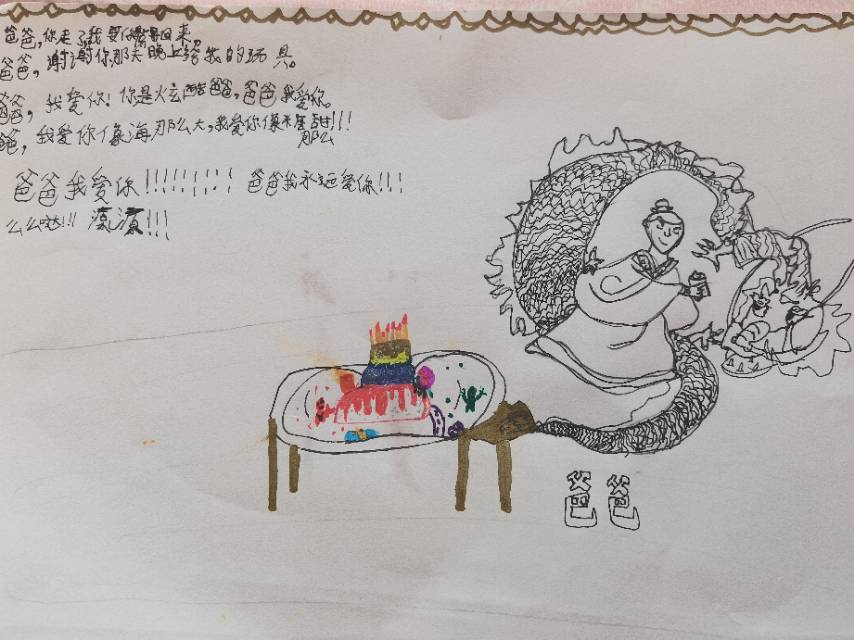 爸爸,你走了我要你回来,
爸爸,谢谢你那天晚上给我的玩具。
爸爸,我爱你!你是炫酷爸爸,爸爸我爱你。
爸爸,我爱你像海那么大,我爱你像那么甜!!!
爸爸我爱你!!!!!!!!! 爸爸我永远爱你!!!
么么哒!!!
爸爸